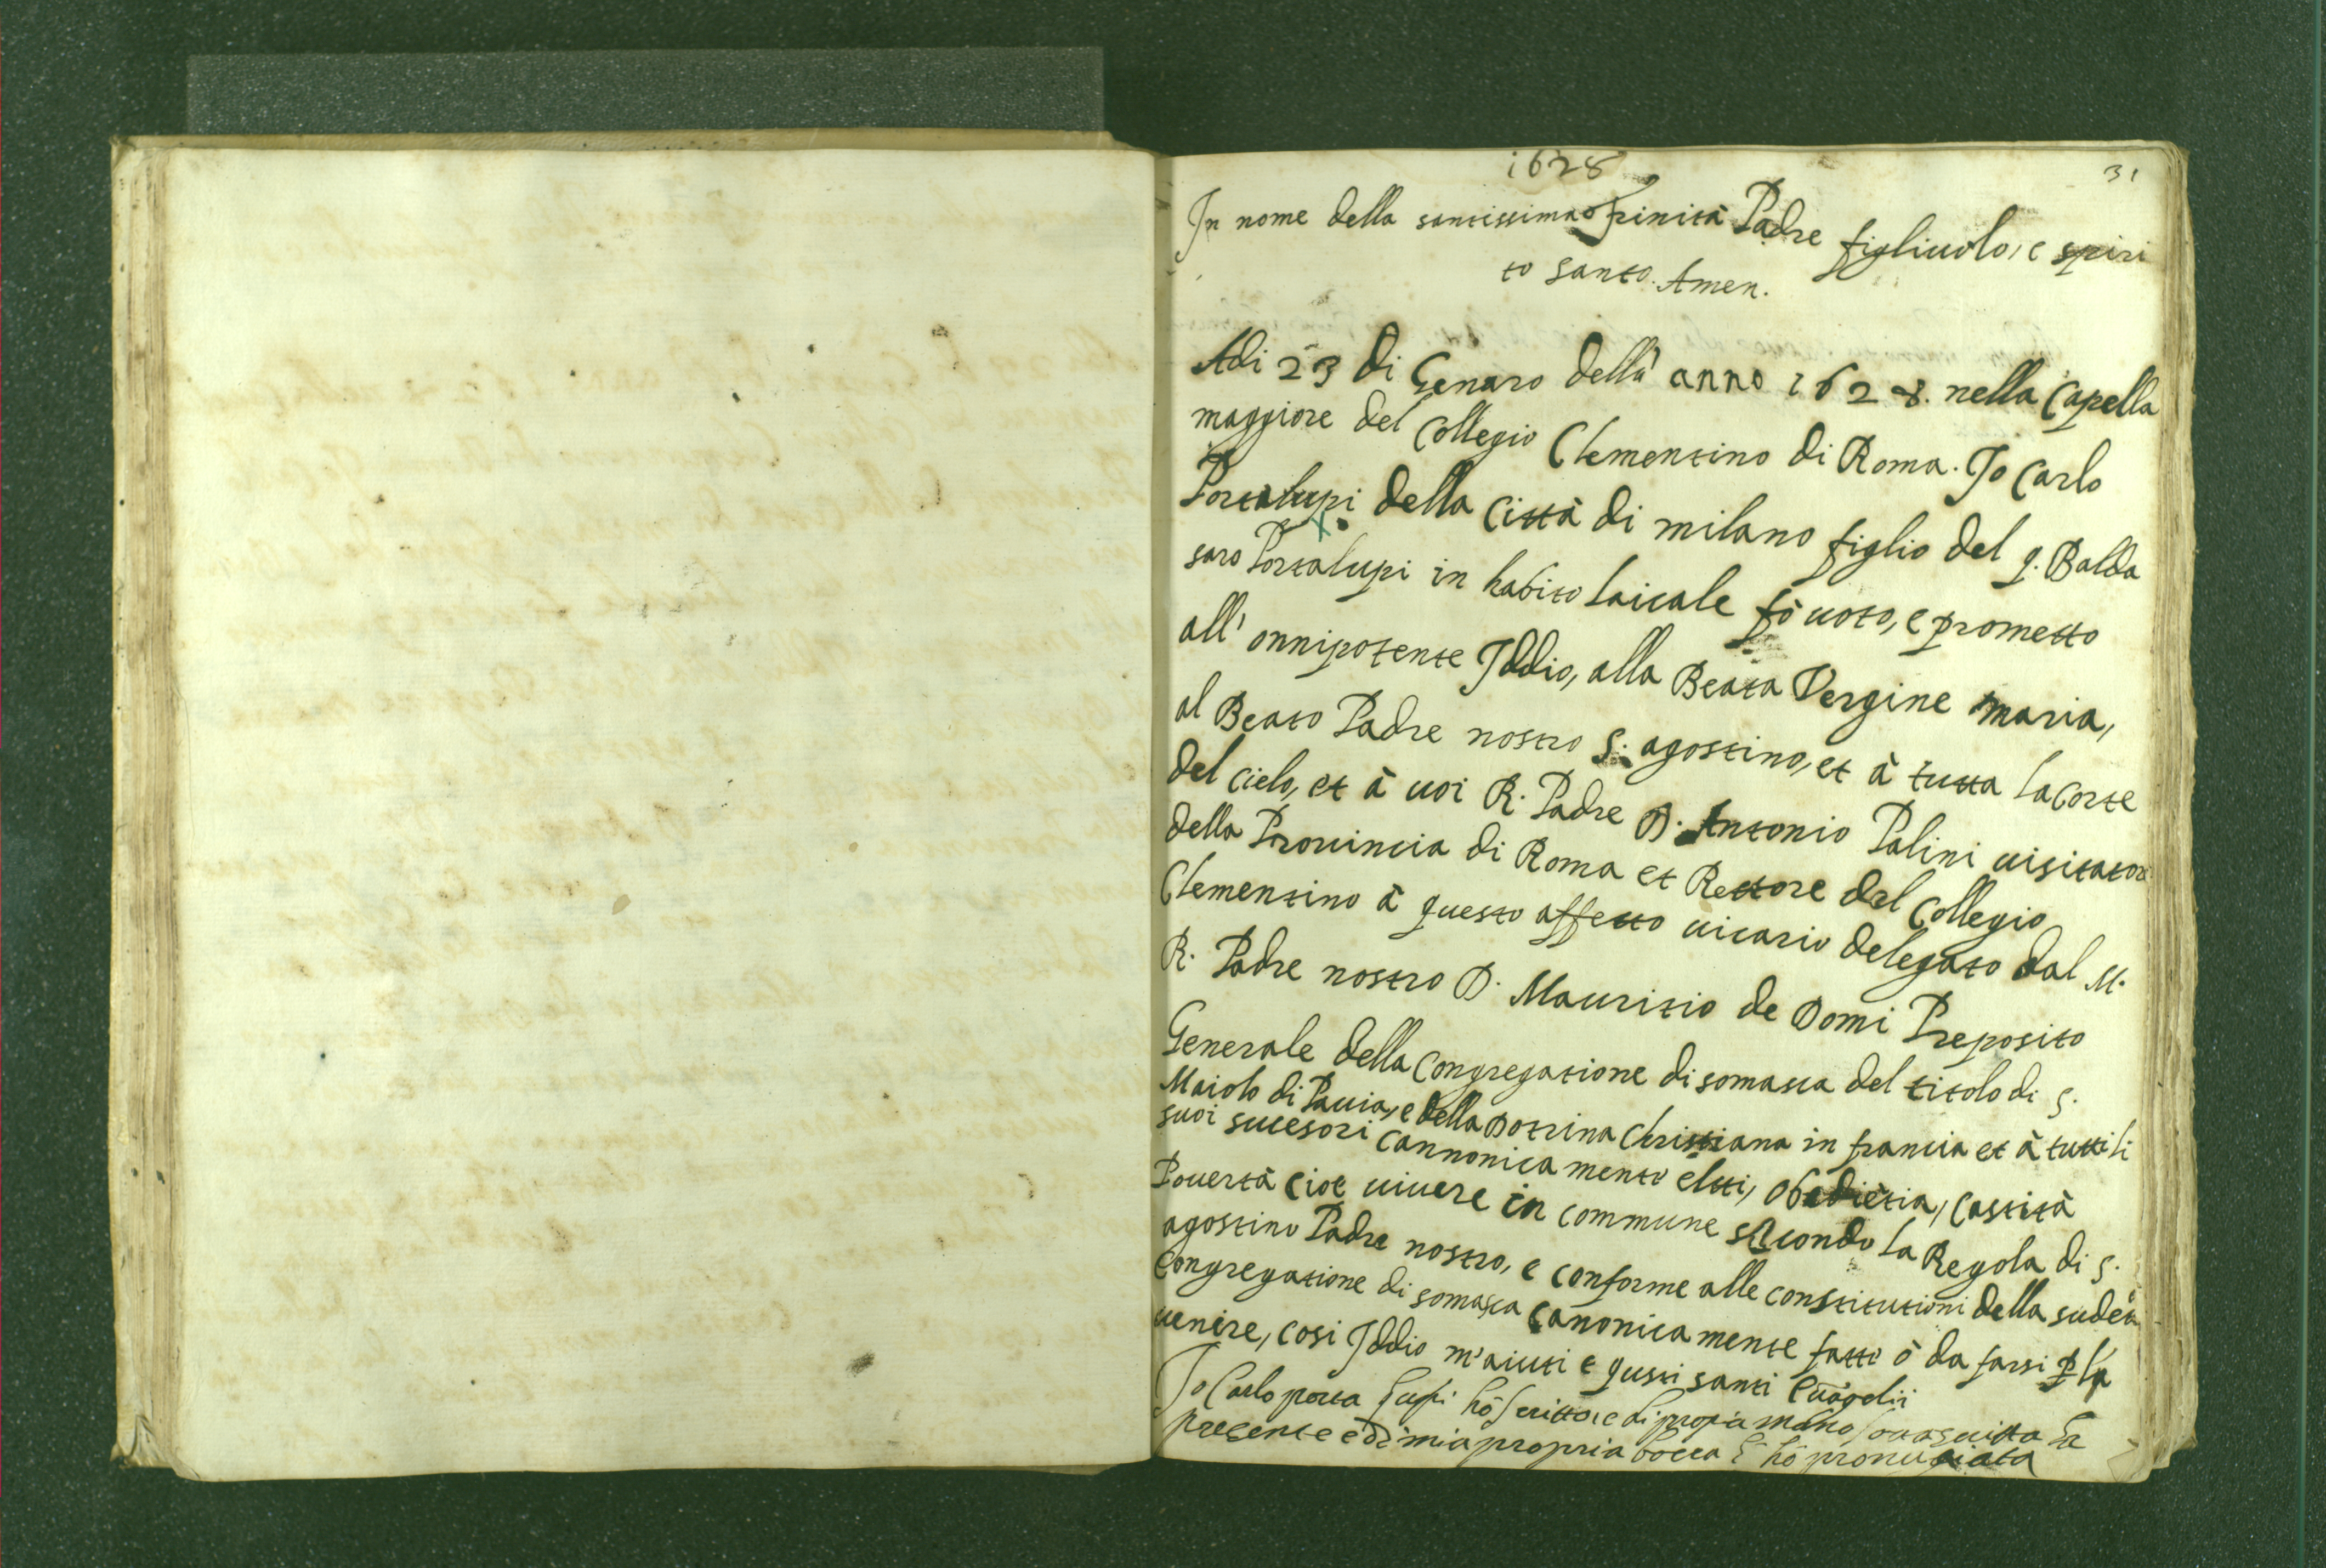 1628
31
In nome della santissima trinità Padre figliuolo, e spiri
to santo. Amen.
Adi 23 di Genaro dell' anno 1628. nella Capella
maggiore del Collegio Clementino di Roma. Io Carlo
Portalupi della Città di milano figlio del q. Balda
saro Portalupi in habito laicale fò uoto, e prometto
all' onnipotente Iddio, alla Beata Vergine maria,
al Beato Padre nostro s. agostino, et à tutta la corte
del cielo, et à uoi R. Padre D. Antonio Palini uisitatore
della Prouincia di Roma et Rettore del Collegio
Clementino à questo affetto uicario delegato dal M.
R. Padre nostro D. Mauritio de Domi Preposito
Generale della Congregatione di somasca del titolo di s.
Maiolo di Pauia, e della Dotrina Christiana in francia et à tutti li
suoi sucesori cannonica mente eletti, Obediẽtia, Castità
Pouertà cioe uiuere in commune secondo la Regola di s.
agostino Padre nostro, e conforme alle constitutioni della sudeta
Congregatione di somasca canonica mente fatte ò da farsi p la
uenire, cosi Iddio m'aiuti e questi santi Euãgelii
Io Carlo porta lupi hò scritto, e di propria mano sottoscritta la
presente e di mia propria bocca l' hò pronũciata